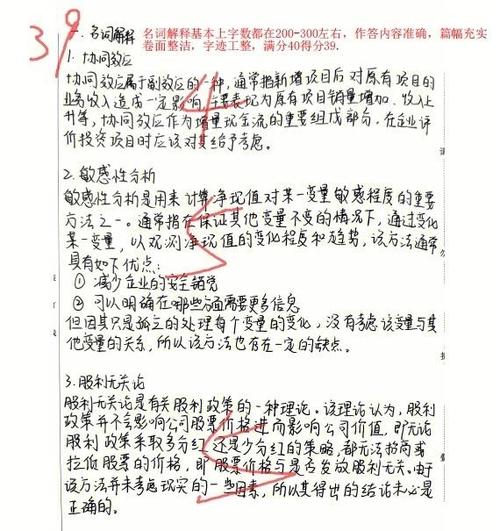 39
一、名词解释 名词解释基本上字数都在200-300左右，作答内容准确，篇幅充实
卷面整洁，字迹工整，满分40得分39.
1. 协同效应
协同效应属于副效应的一种，通常指新增项目后对原有项目的
业务收入造成一定影响，主要表现为原有项目销量增加、收入上
升等，协同效应作为增量现金流的重要组成部分，在企业评
价投资项目时应该对其给予考虑。
4
2. 敏感性分析
敏感性分析是用来计算净现值对某一变量敏感程度的重要
方法之一。通常指在保证其他变量不变的情况下，通过变化
某一变量，以观测净现值的变化程度和趋势，该方法通常
具有如下优点：
① 减少企业的安全错觉
② 可以明确在哪些方面需要更多信息
但因其只是孤立的处理每个变量的变化，没有考虑该变量与其
他变量的关系，所以该方法也存在一定的缺点。
5
3. 股利无关论
股利无关论是有关股利政策的一种理论。该理论认为，股利
政策并不会影响公司股票价格进而影响公司价值，即无论
股利政策采取多分红还是少分红的策略，都无法抬高或
拉低股票的价格，即股票价格与是否发放股利无关。由于
该方法并未考虑现实的一些因素，所以其得出的结论未必是
正确的。
5